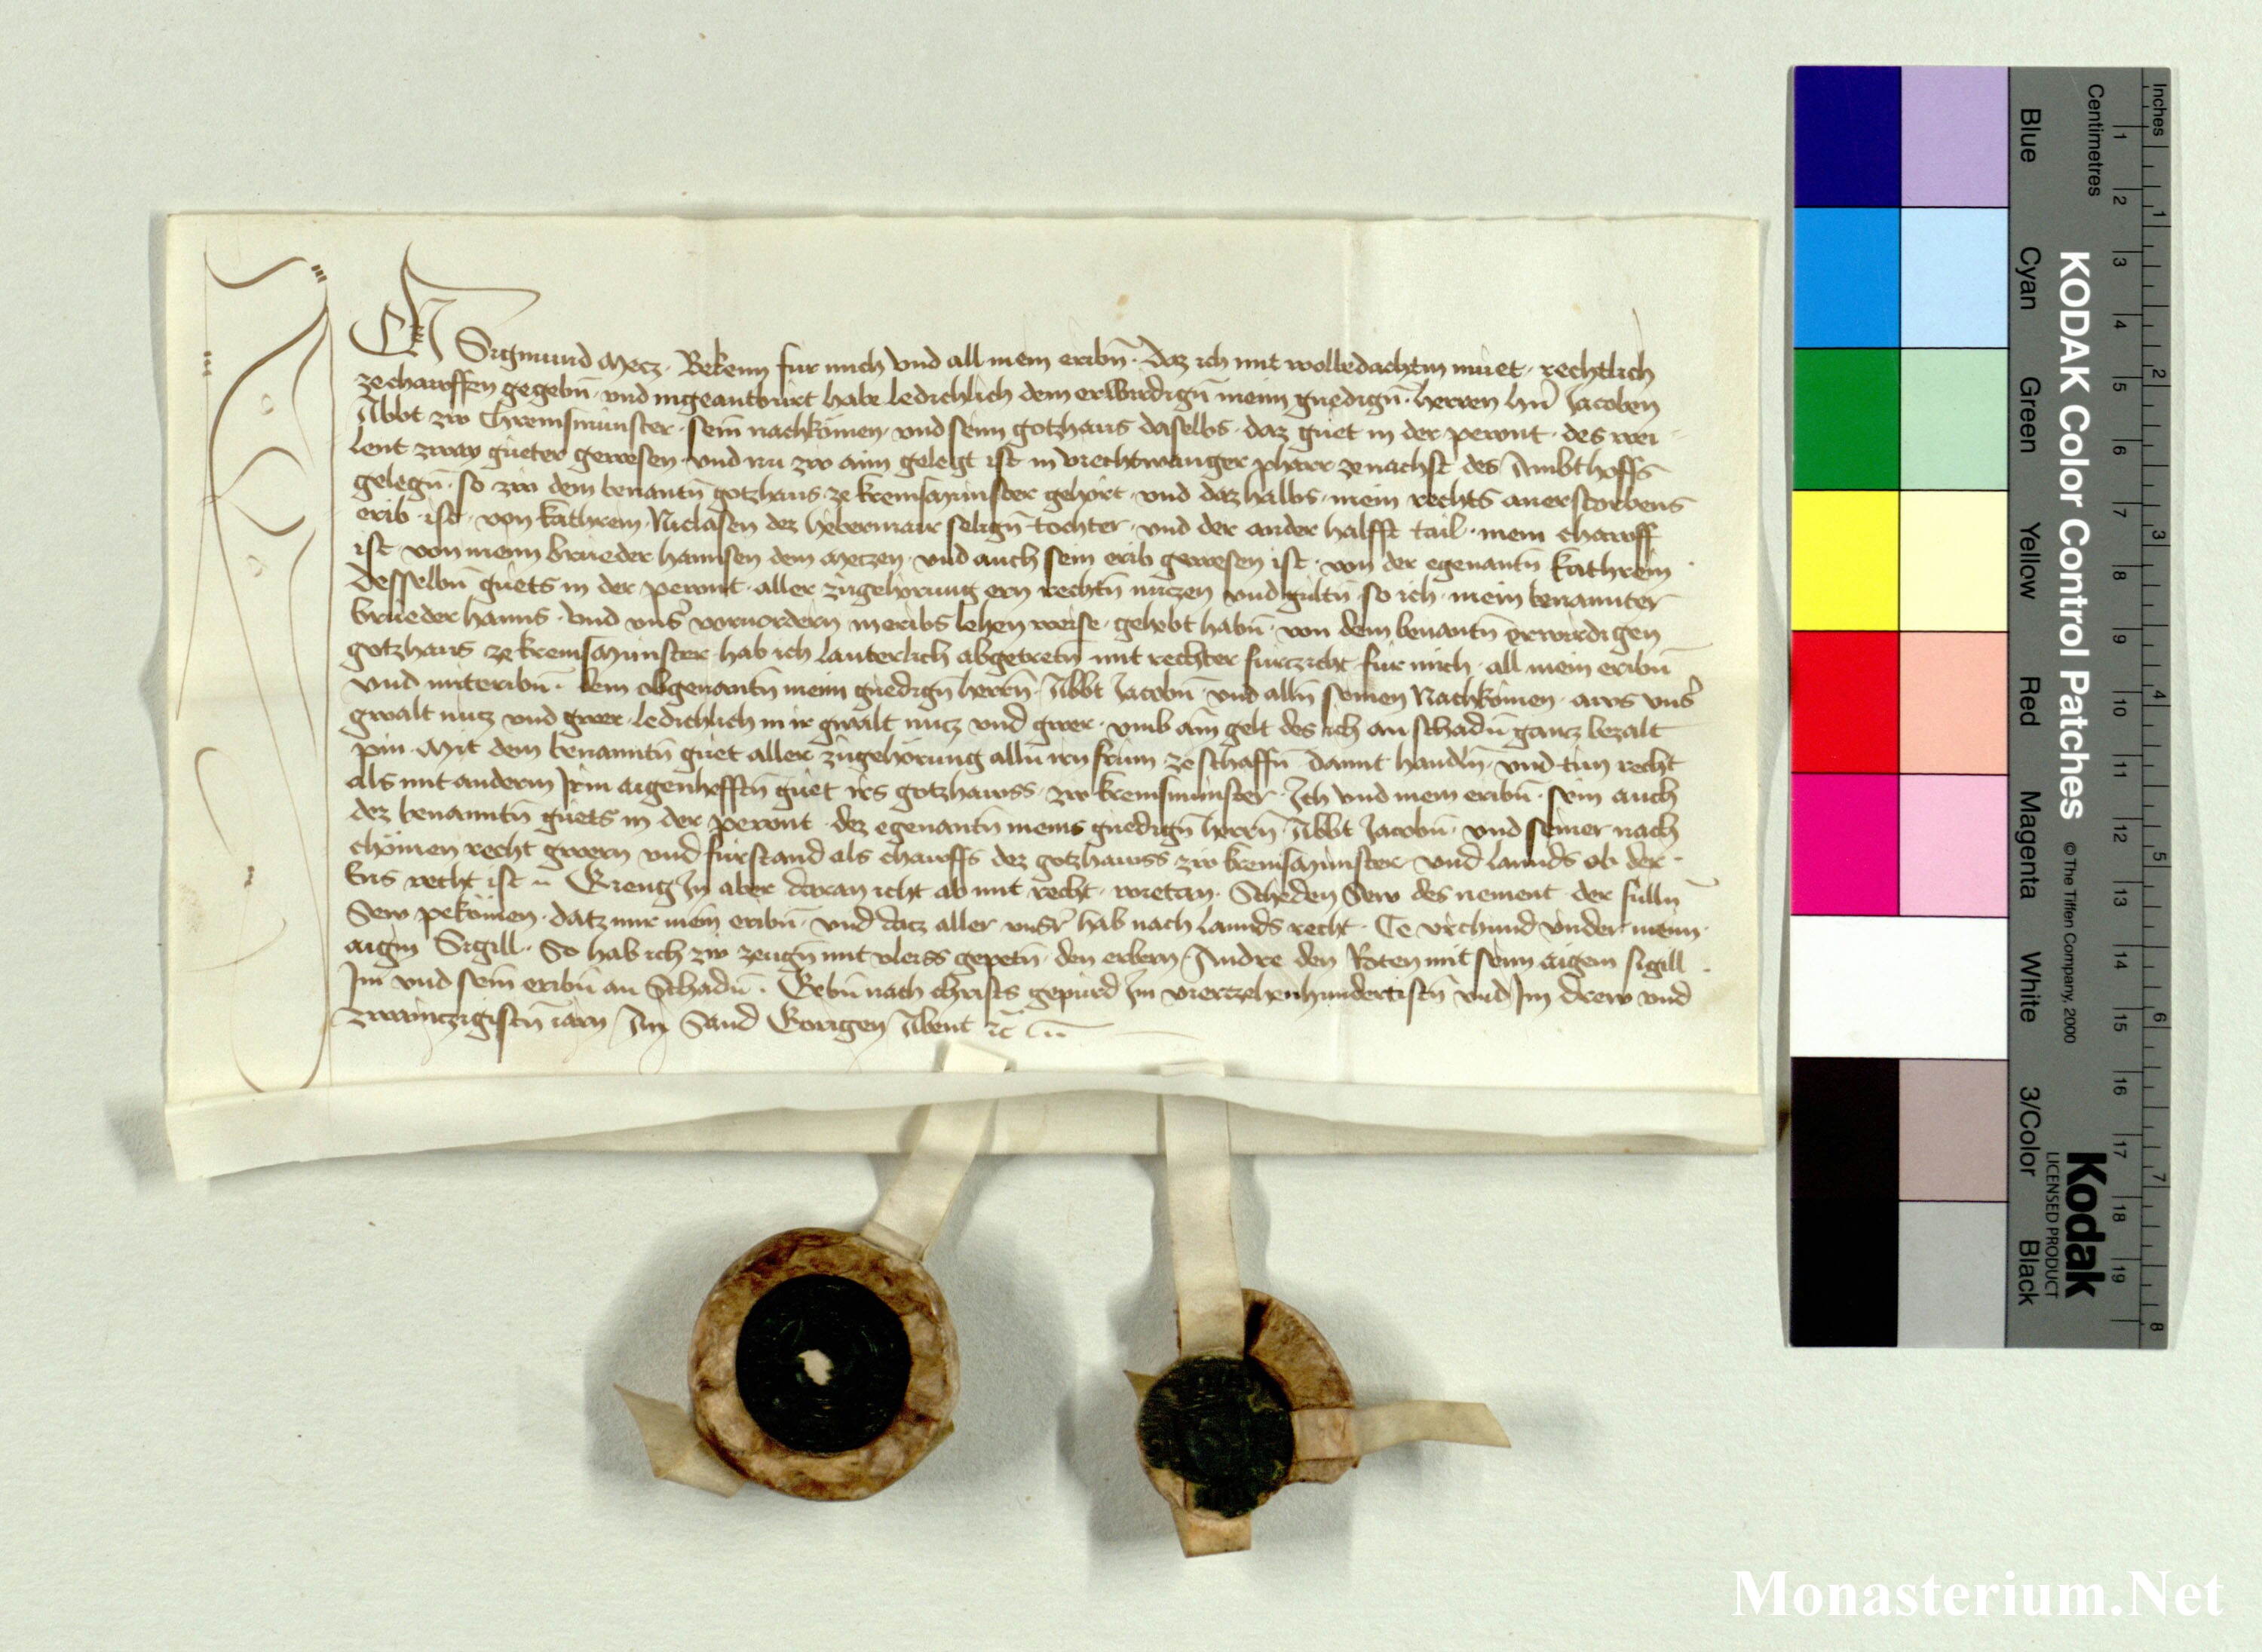 Ich Sigmund Mecz · Bekenn fur mich vnd all mein eribn̄ · daz ich mit wolbedachtm muet · rechtlich
zechawffen gegebn̄ · vnd ingeantburt habe ledichlich dem erbirdign̄ meim gnedign̄ · herren hn̄ Jacoben
Abbt zw Chremsmunster · sein nachkömen · vnd seim gotzhaus daselbs · daz guet in der pewnt · des wei
lent zway gueter gewesen · vnd nu zw aim gelegt ist in viechtwanger pharr zenachst des Ambthoffs
gelegn̄ · so zw dem benantn̄ gotzhaus ze kremsmunster gehört · vnd daz halbs · mein rechts anerstorbens
erib ist · von kathrein Niclasen dez hebermair selign̄ tochter · vnd der ander halfft tail · mein chawff
ist von meim brueder hannsen dem Meczen · vnd auch sein erib gewesen ist · von der egenantn̄ kathrein ·
desselbn̄ guets in der pewnt · aller zugehorung ern rechtn̄ nuczen vnd gultn̄ so ich · mein benannter
brueder hanns · vnd vns̄ voruordern in eribs lehen weise · gehebt habn̄ · von dem benantn̄ erwirdigen
gotzhaus ze kremsmunster hab ich lauterlich abgetretn̄ mit rechter furczicht fur mich · all mein eribn̄
vnd miteribn̄ · dem obgenantn̄ meim gnedign̄ herrn̄ · Abbt Jacobn̄ · vnd alln̄ seinen Nachkömen · aws vns̄
gwalt nucz vnd gwer · ledichlich in ir gwalt nucz vnd gwer · vmb ain gelt des ich an schadn̄ gancz bezalt
pin · Mit dem benanntn̄ guet aller zugehörung alln irn frum ze schaffn̄ damit handln̄ · vnd tun recht
als mit anderm Irm aigenhefftn̄ guet irs gotzhawss · zw kremsmunster · Ich vnd mein eribn̄ · sein auch
dez benanntn̄ guets in der pewnt · dez egenantn̄ meins gnedign̄ herrn̄ · Abbt Jacobn̄ · vnd seiner nach
chömen recht gwern vnd furstand als chawffs dez gotzhawss zw kremsmunster vnd lannds ob der ·
Ens recht ist · Gieng In aber daran icht ab mit recht · wietan · Scheden Sew des nement · der sulln̄
Sew pekömen · datz mir mein eribn̄ · vnd datz aller vnsr̄ hab nach lannds recht · Ce vrchund vnder meim ·
aigm Sigill · So hab ich zw zeugn̄ mit vleiss gepetn̄ · den erbern · Andre den Roten mit seim aigem sigill ·
Im vnd sein eribn̄ an Schadn̄ · Gebn̄ nach christs gepurd Im vierczehenhundertistn̄ vnd Im drew vnd
zwainczigistn̄ iarn An Sand Gorigen Abent ꝛc̄
Inches
Centimetres
KODAK Color Control Patches
© The Tiffen Company, 2000
Kodak
LICENSED PRODUCT
Blue
Cyan
Green
Yellow
Red
Magenta
White
3/Color
Black
1 2 3 4 5 6 7 8 9 10 11 12 13 14 15 16 17 18 19
1 2 3 4 5 6 7 8
Monasterium.Net